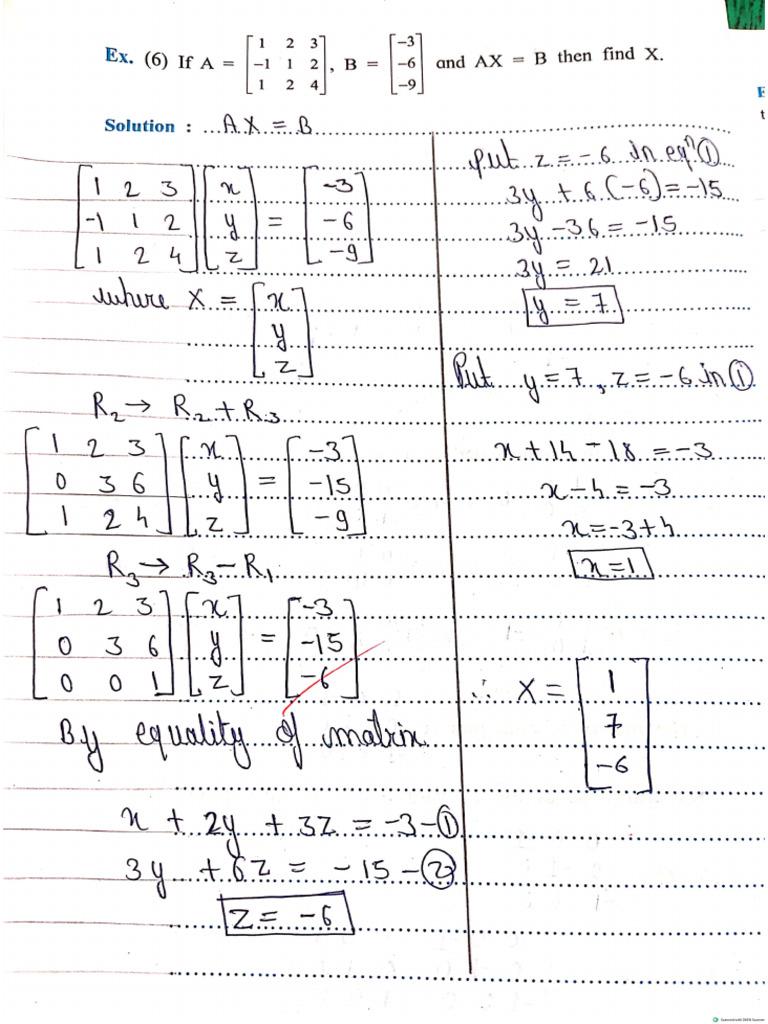 Ex. (6) If A = [1 2 3; -1 1 2; 1 2 4], B = [-3; -6; -9] and AX = B then find X.
Solution : AX = B
[1 2 3] [x] [-3]
[-1 1 2] [y] = [-6]
[1 2 4] [z] [-9]
where X = [x; y; z]
R2 → R2 + R3
[1 2 3] [x] [-3]
[0 3 6] [y] = [-15]
[1 2 4] [z] [-9]
R3 → R3 - R1
[1 2 3] [x] [-3]
[0 3 6] [y] = [-15]
[0 0 1] [z] [-6]
By equality of matrix
x + 2y + 3z = -3 - ①
3y + 6z = -15 - ②
z = -6
Put z = -6 in eqn ①
3y + 6(-6) = -15
3y - 36 = -15
3y = 21
y = 7
Put y = 7, z = -6 in ①
x + 14 - 18 = -3
x - 4 = -3
x = -3 + 4
x = 1
∴ X = [1; 7; -6]